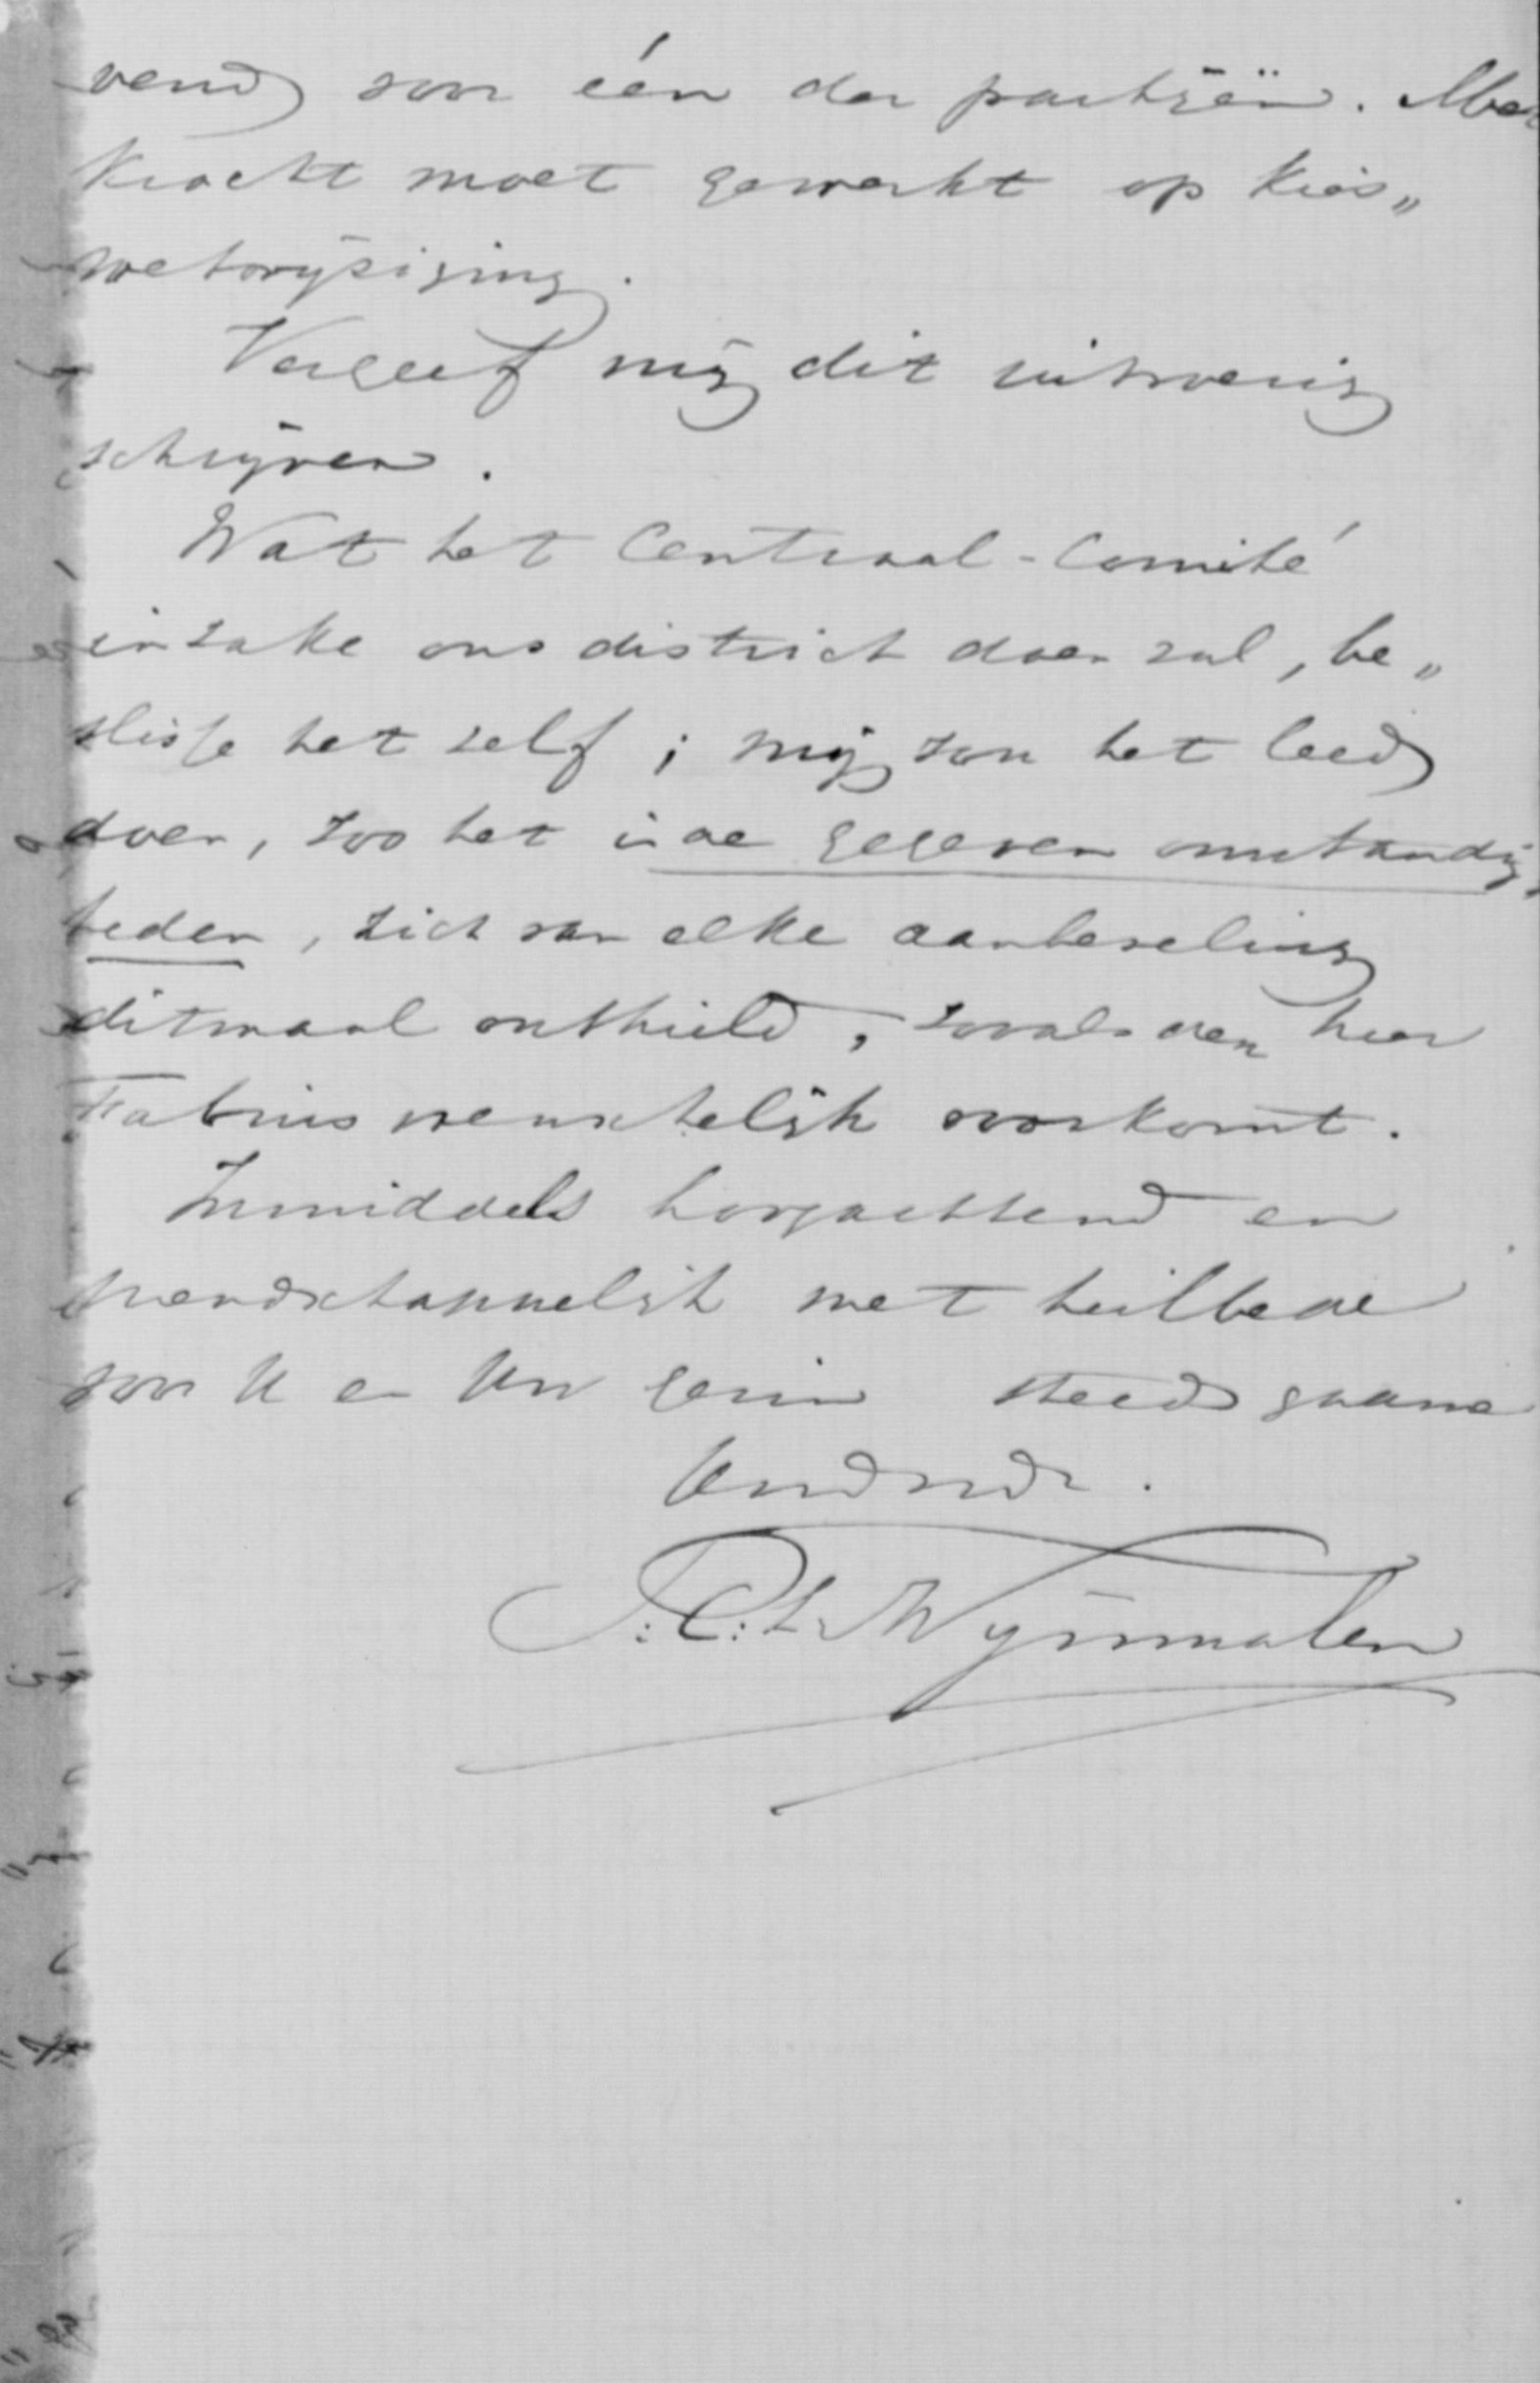 vend voor één der partijën. Met
kracht moet gewerkt op kies„
wetwijziging.
Vergeef mij dit uitvoerig
schrijven.
Wat het Centraal-Comité
inzake ons district doen zal, be„
slisse het zelf; mij zou het leed
doen, zoo het in de gegeven omstandig„
heden, zich van elke aanbeveling
ditmaal onthield, zooals den heer
Fabius wenschelijk voorkomt.
Inmiddels hoogachtend en
vriendschappelijk met heilbede
voor U en Uw gezin steeds gaarne
Uwdwdr.
T.C.L. Wijnmalen